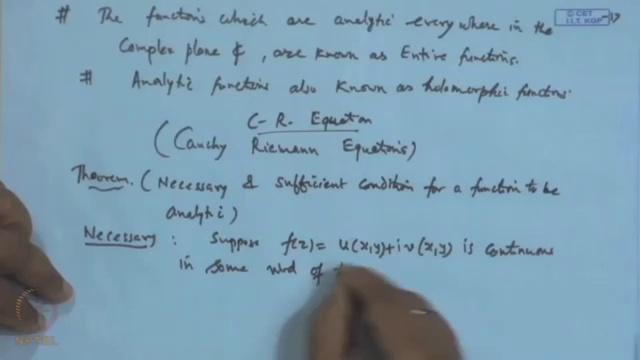 # The functions which are analytic everywhere in the
Complex plane ₵, are known as Entire functions.
# Analytic functions also known as holomorphic functions.
C-R. Equation
(Cauchy Riemann Equations)
Theorem. (Necessary & sufficient condition for a function to be
analytic)
Necessary : Suppose f(z) = u(x,y)+iv(x,y) is continuous
in some nbd of
© CET
I.I.T. KGP
NPTEL